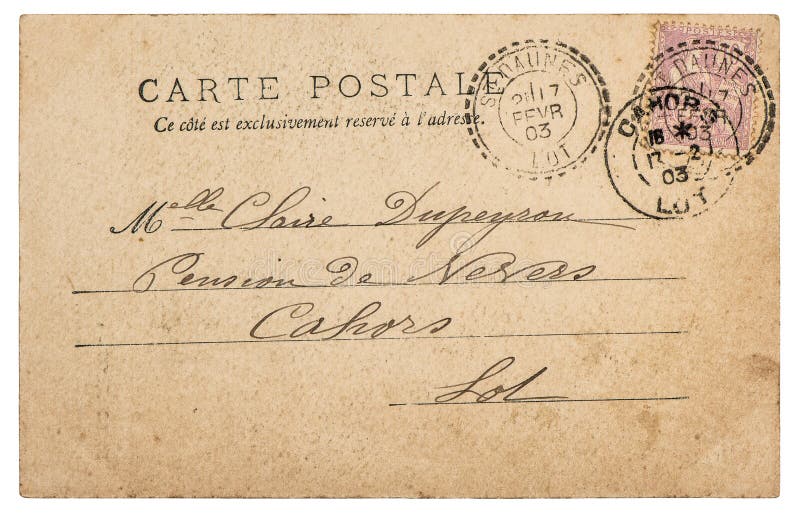 CARTE POSTALE
Ce côté est exclusivement reservé à l'adresse.
ST DAUNES
2E 17
FEVR
03
LOT
POSTES
DAUNES
17
03
CAHORS
18 *
17 - 2
03
LOT
Melle Claire Dupeyrou
Pension de Nevers
Cahors
Lot